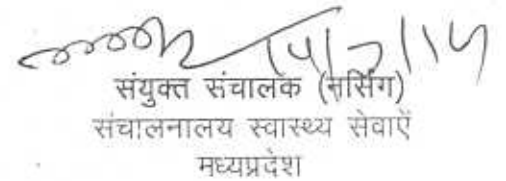 14/7/14
संयुक्त संचालक (नर्सिंग)
संचालनालय स्वास्थ्य सेवाऐं
मध्यप्रदेश